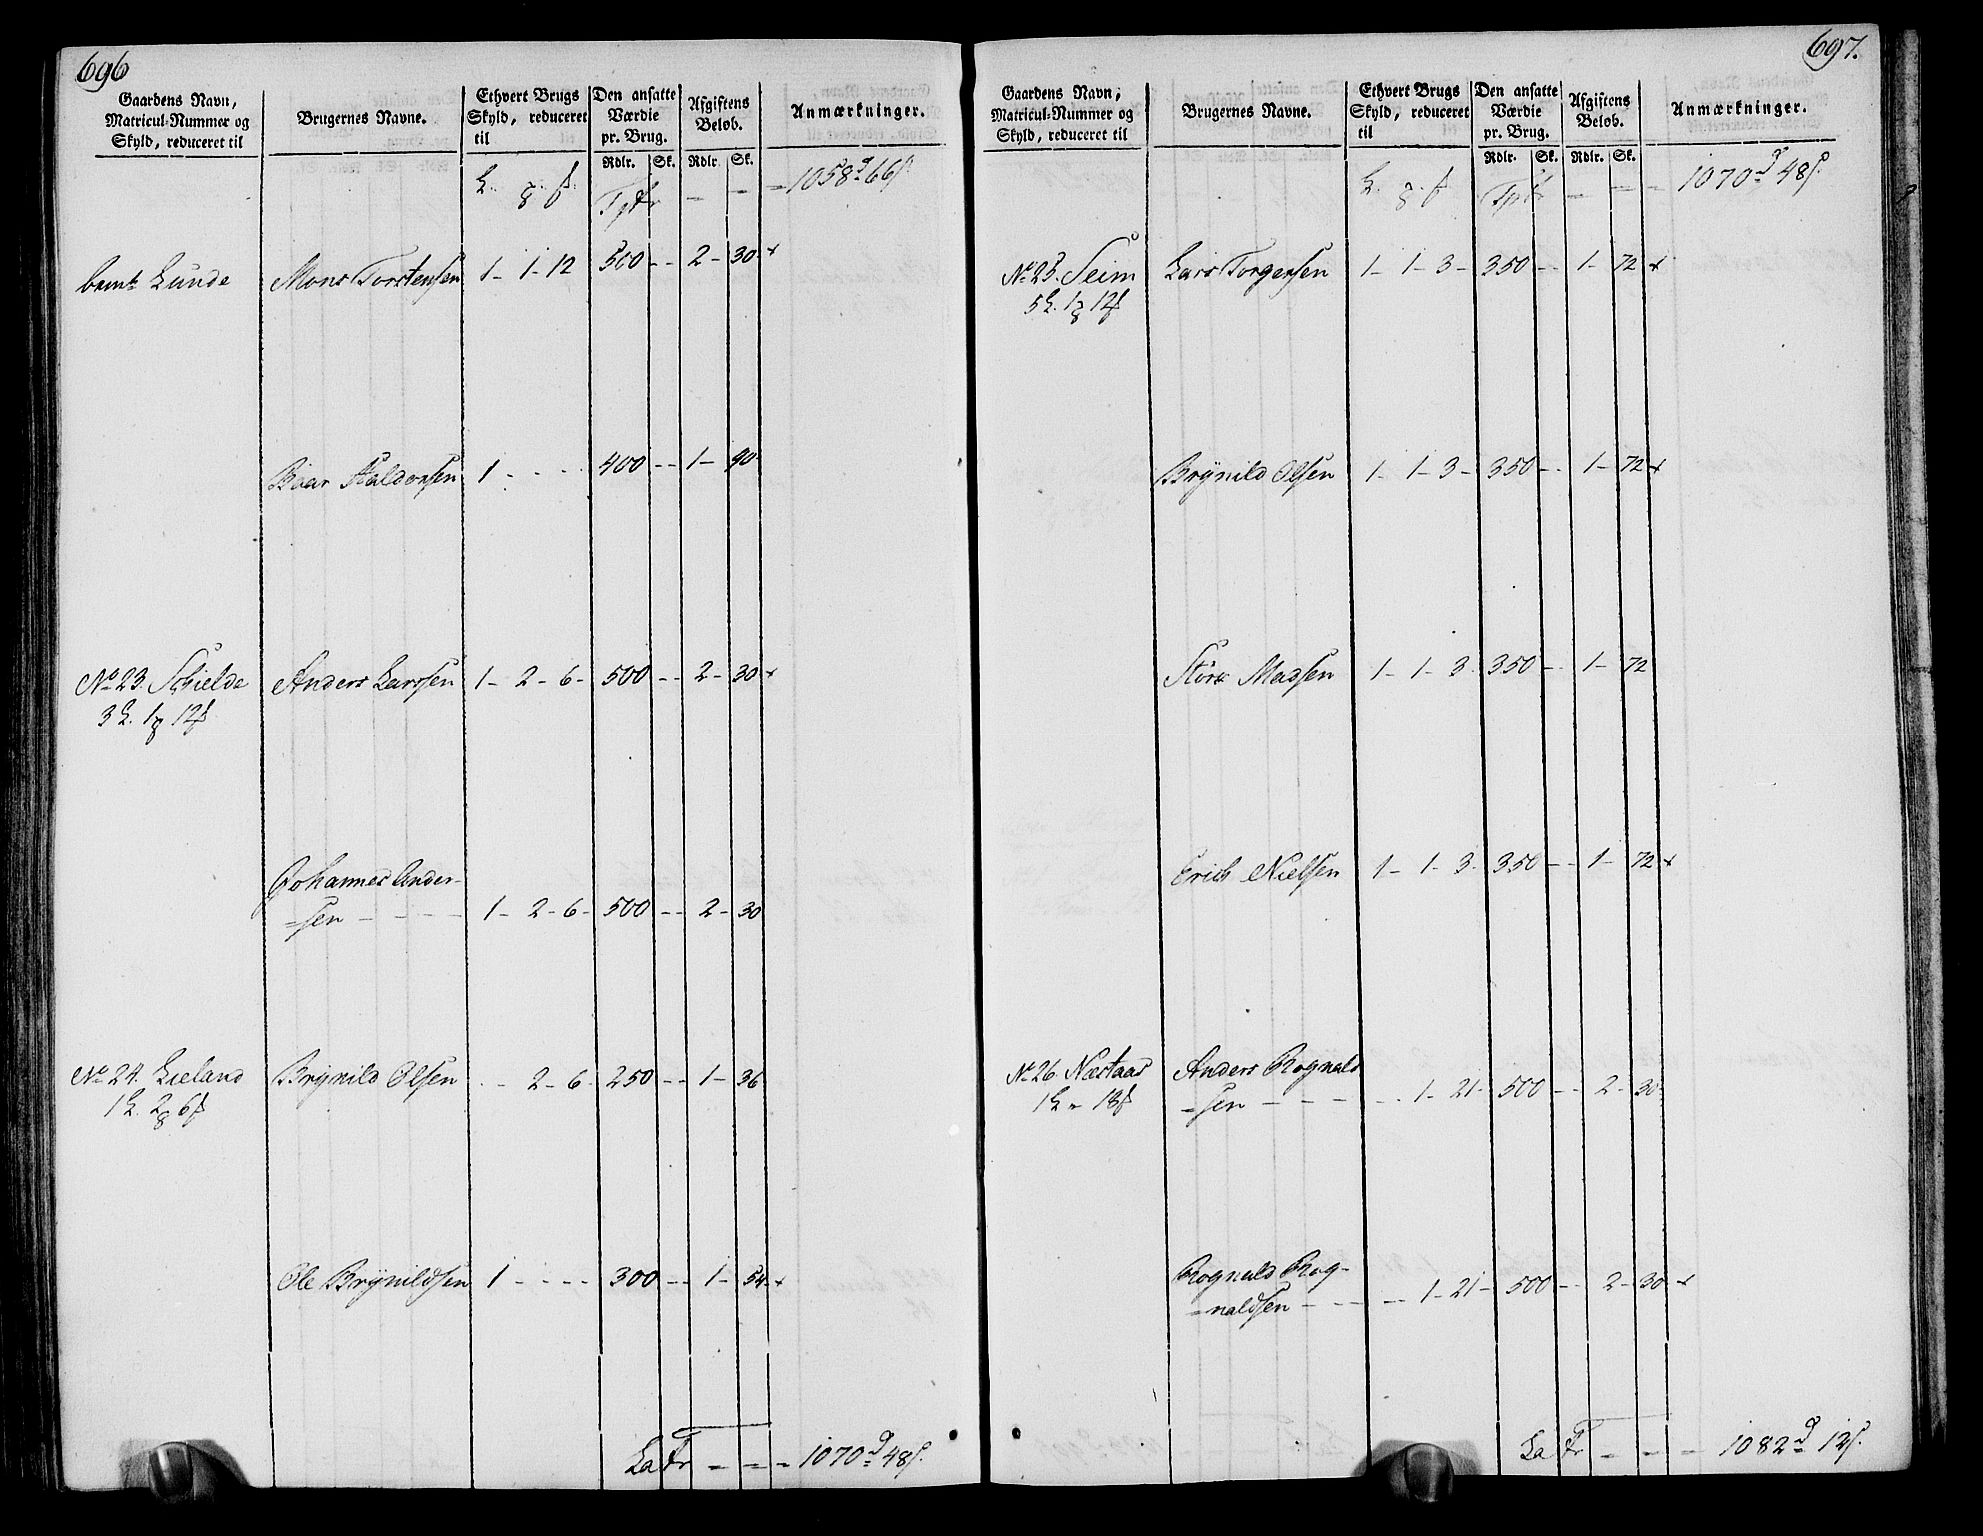 696
Gaardens Navn, Matricul-Nummer og Skyld, reduceret til | Brugernes Navne. | Ethvert Brugs Skyld, reduceret til | Den ansatte Værdie pr. Brug. Rdlr. Sk. | Afgiftens Beløb. Rdlr. Sk. | Anmærkninger.
Tptr - - - 1058 d 66 s.
Lunde Mons Torstensen 1- 1- 12 500 -- 2- 30 +
Baar Haldorsen 1 - - - 400 -- 1- 90
No 23. Schielde Anders Larssen 1- 2- 6- 500 -- 2- 30 +
3 L. 1 12
Johannes Ander-
=sen - - - - 1- 2- 6- 500 -- 2- 30
No 24. Lieland Brÿnild Olsen - - 2- 6- 250 -- 1- 36
1 L. 2 6
Ole Brÿnildsen 1 - - - - 300 -- 1- 54 +
La Tr - - - 1070 d 48 s.
697.
Gaardens Navn, Matricul-Nummer og Skyld, reduceret til | Brugernes Navne. | Ethvert Brugs Skyld, reduceret til | Den ansatte Værdie pr. Brug. Rdlr. Sk. | Afgiftens Beløb. Rdlr. Sk. | Anmærkninger.
Tptr - - - 1070 d 48 s.
No 25. Seim Lars Torgersen 1- 1- 3- 350 -- 1- 72 +
5 L. 1 12
Brÿnild Olsen 1- 1- 3- 350 -- 1- 72 +
Madsen 1- 1- 3 350 -- 1- 72
Erich Nielsen 1- 1- 3- 350 -- 1- 72 +
No 26. Næstaas Anders Rognald
1 L - 18 =sen - - - - - 1- 21- 500 -- 2- 30
Rognald Rog-
=naldsen - - - - 1- 21- 500 -- 2- 30 +
La Tr - - - 1082 d 12 s.